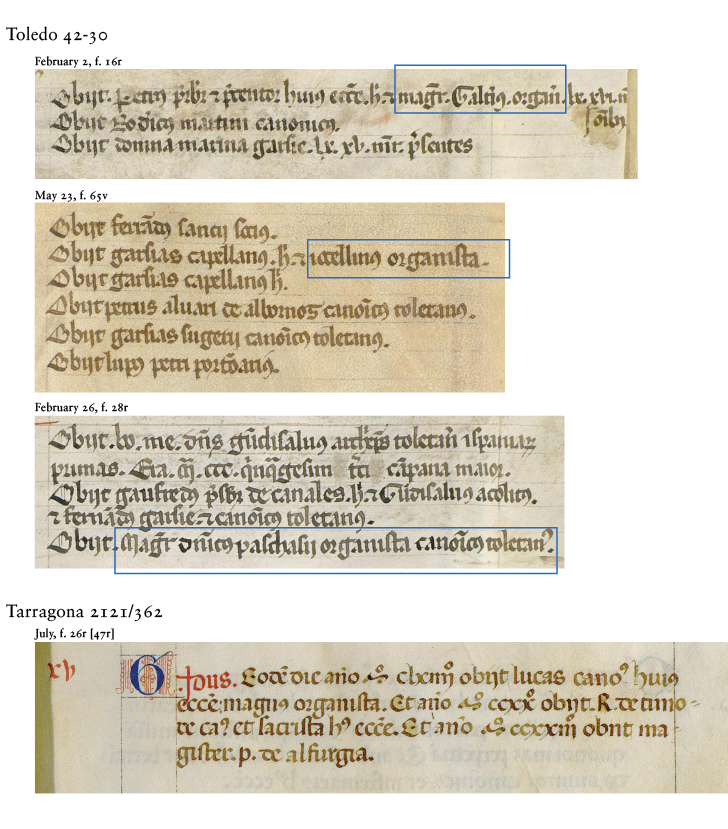 Toledo 42-30
February 2, f. 16r
Obijt. Petrus p̄sbr ⁊ p̄centor huius ecce. h. ⁊ magr̄. Galtiꝰ. organ̄. lx. xvi. n̄
Obijt Rodicꝰ martini canonicꝰ.
Obijt domina marina garsie. lx. xv. mr̄. p̄sentes
May 23, f. 65v
Obijt ferrādꝰ sancij sociꝰ.
Obijt garsias capellanꝰ. h̄. ⁊ iocellinꝰ organista.
Obijt garsias capellanꝰ h̄.
Obijt petrus aluari de albornoz canoicꝰ toletanꝰ.
Obijt garsias sugerij canoicꝰ toletanꝰ.
Obijt lupꝰ petri portōariꝰ.
February 26, f. 28r
Obijt. bo. me. dn̄s gūdisaluꝰ archiep̄s toletan̄ ispaniaꝝ
primas. Era. m̄. ccc. q̄nq̄gesim tc̄i cāpana maior.
Obijt gaufredꝰ p̄sbr̄ de canales. h̄. ⁊ Gūdisaluꝰ acolitꝰ.
⁊ fernādꝰ garsie. ⁊ canoicꝰ toletanꝰ.
Obijt. Magr̄ dn̄icꝰ paschasij organista canoicꝰ toletanꝰ.
Tarragona 2121/362
July, f. 26r [47r]
xv Idus. Eodē die año clxiiij obijt lucas canoꝰ huiꝰ
ecce: magnꝰ organista. Et año ccxx obijt. R. de timo-
te caꝰ. et sacrista hꝰ ecce. Et año ccxxiij obijt ma-
gister. p. de alfurgia.